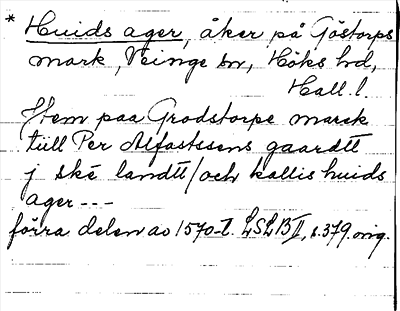 * Huids ager, åker på Göstorps
mark, Veinge sn, Höks hd,
Hall. l.
Item paa Grodstorpe marck
tüll Per Alfastssens gaardtt
j ske landtt/och kallis huids
ager ---
förra delen av 1570-t. LSLB II, s. 379. orig.